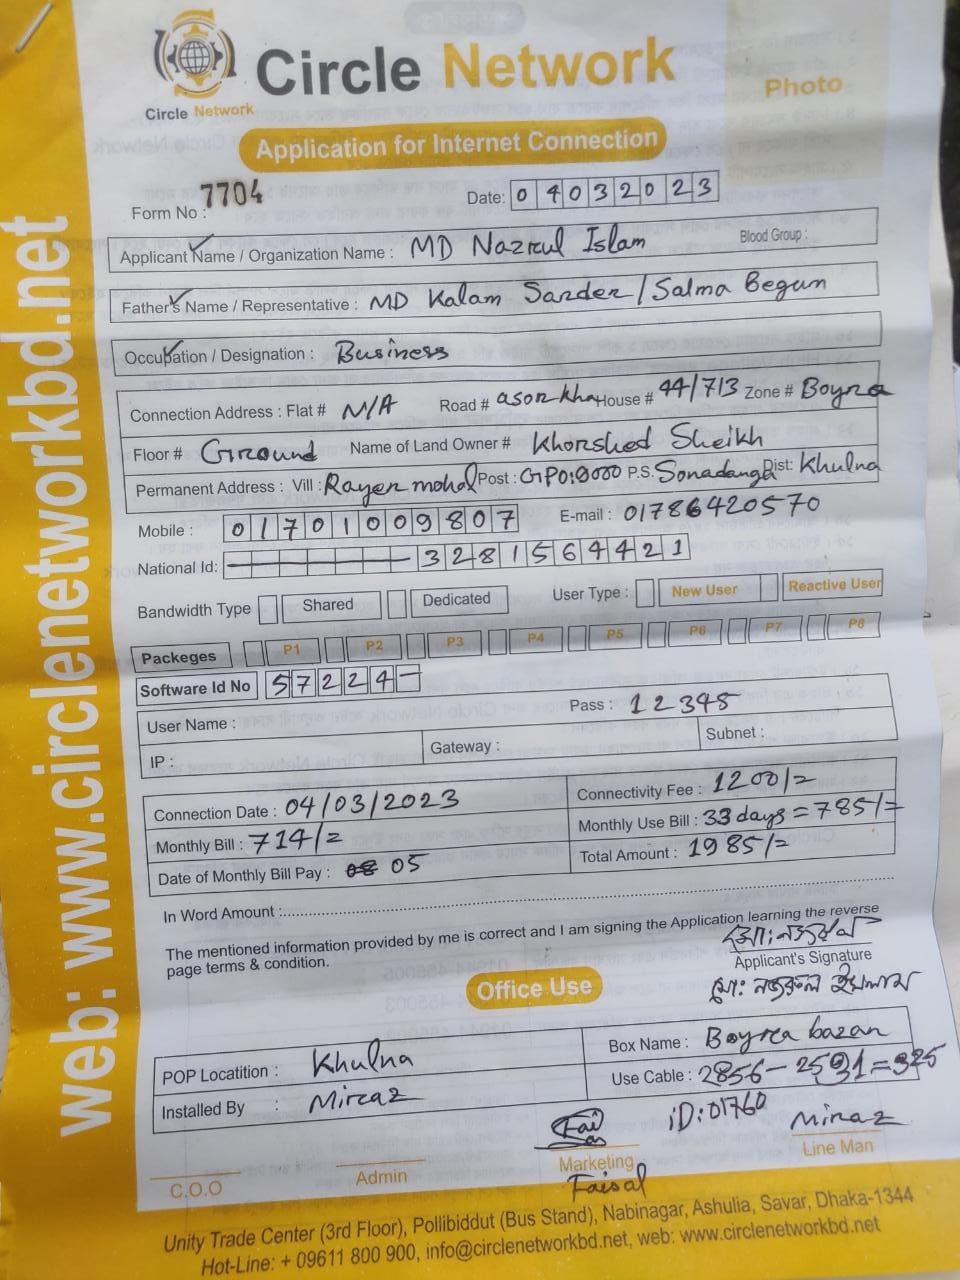 Circle Network
Circle Network
Photo
Application for Internet Connection
Form No : 7704
Date: 04032023
Applicant Name / Organization Name : MD Nazrul Islam Blood Group :
Father's Name / Representative : MD Kalam Sarder/Salma Begum
Occupation / Designation : Business
Connection Address : Flat # N/A Road # asorkha House # 44/713 Zone # Boyra
Floor # Ground Name of Land Owner # Khorshed Sheikh
Permanent Address : Vill : Rayer mohol Post : GPO:9000 P.S. Sonadanga Dist: Khulna
Mobile : 01701009807 E-mail : 01786420570
National Id: 3281564421
Bandwidth Type Shared Dedicated User Type : New User Reactive User
Packeges P1 P2 P3 P4 P5 P6 P7 P8
Software Id No 57224-
User Name : Pass : 12345
IP : Gateway : Subnet :
Connection Date : 04/03/2023 Connectivity Fee : 1200/=
Monthly Bill : 714/= Monthly Use Bill : 33 days = 785/=
Date of Monthly Bill Pay : 05 Total Amount : 1985/=
In Word Amount :
The mentioned information provided by me is correct and I am signing the Application learning the reverse
page terms & condition.
মো: নজরুল
Applicant's Signature
মো: নজরুল ইসলাম
Office Use
POP Locatition : Khulna Box Name : Boyra bazar
Installed By : Miraz Use Cable : 2856-2531=325
iD:01760
Miraz
C.O.O Admin Marketing Line Man
Faisal
Unity Trade Center (3rd Floor), Pollibiddut (Bus Stand), Nabinagar, Ashulia, Savar, Dhaka-1344
Hot-Line: + 09611 800 900, info@circlenetworkbd.net, web: www.circlenetworkbd.net
web: www.circlenetworkbd.net